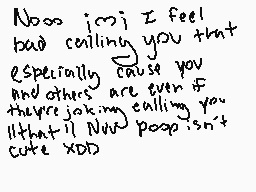 Nooo ;o; I feel
bad calling you that
especially cause you
and others are even if
they're joking calling you
"that" Nuu poop isn't
cute XDD